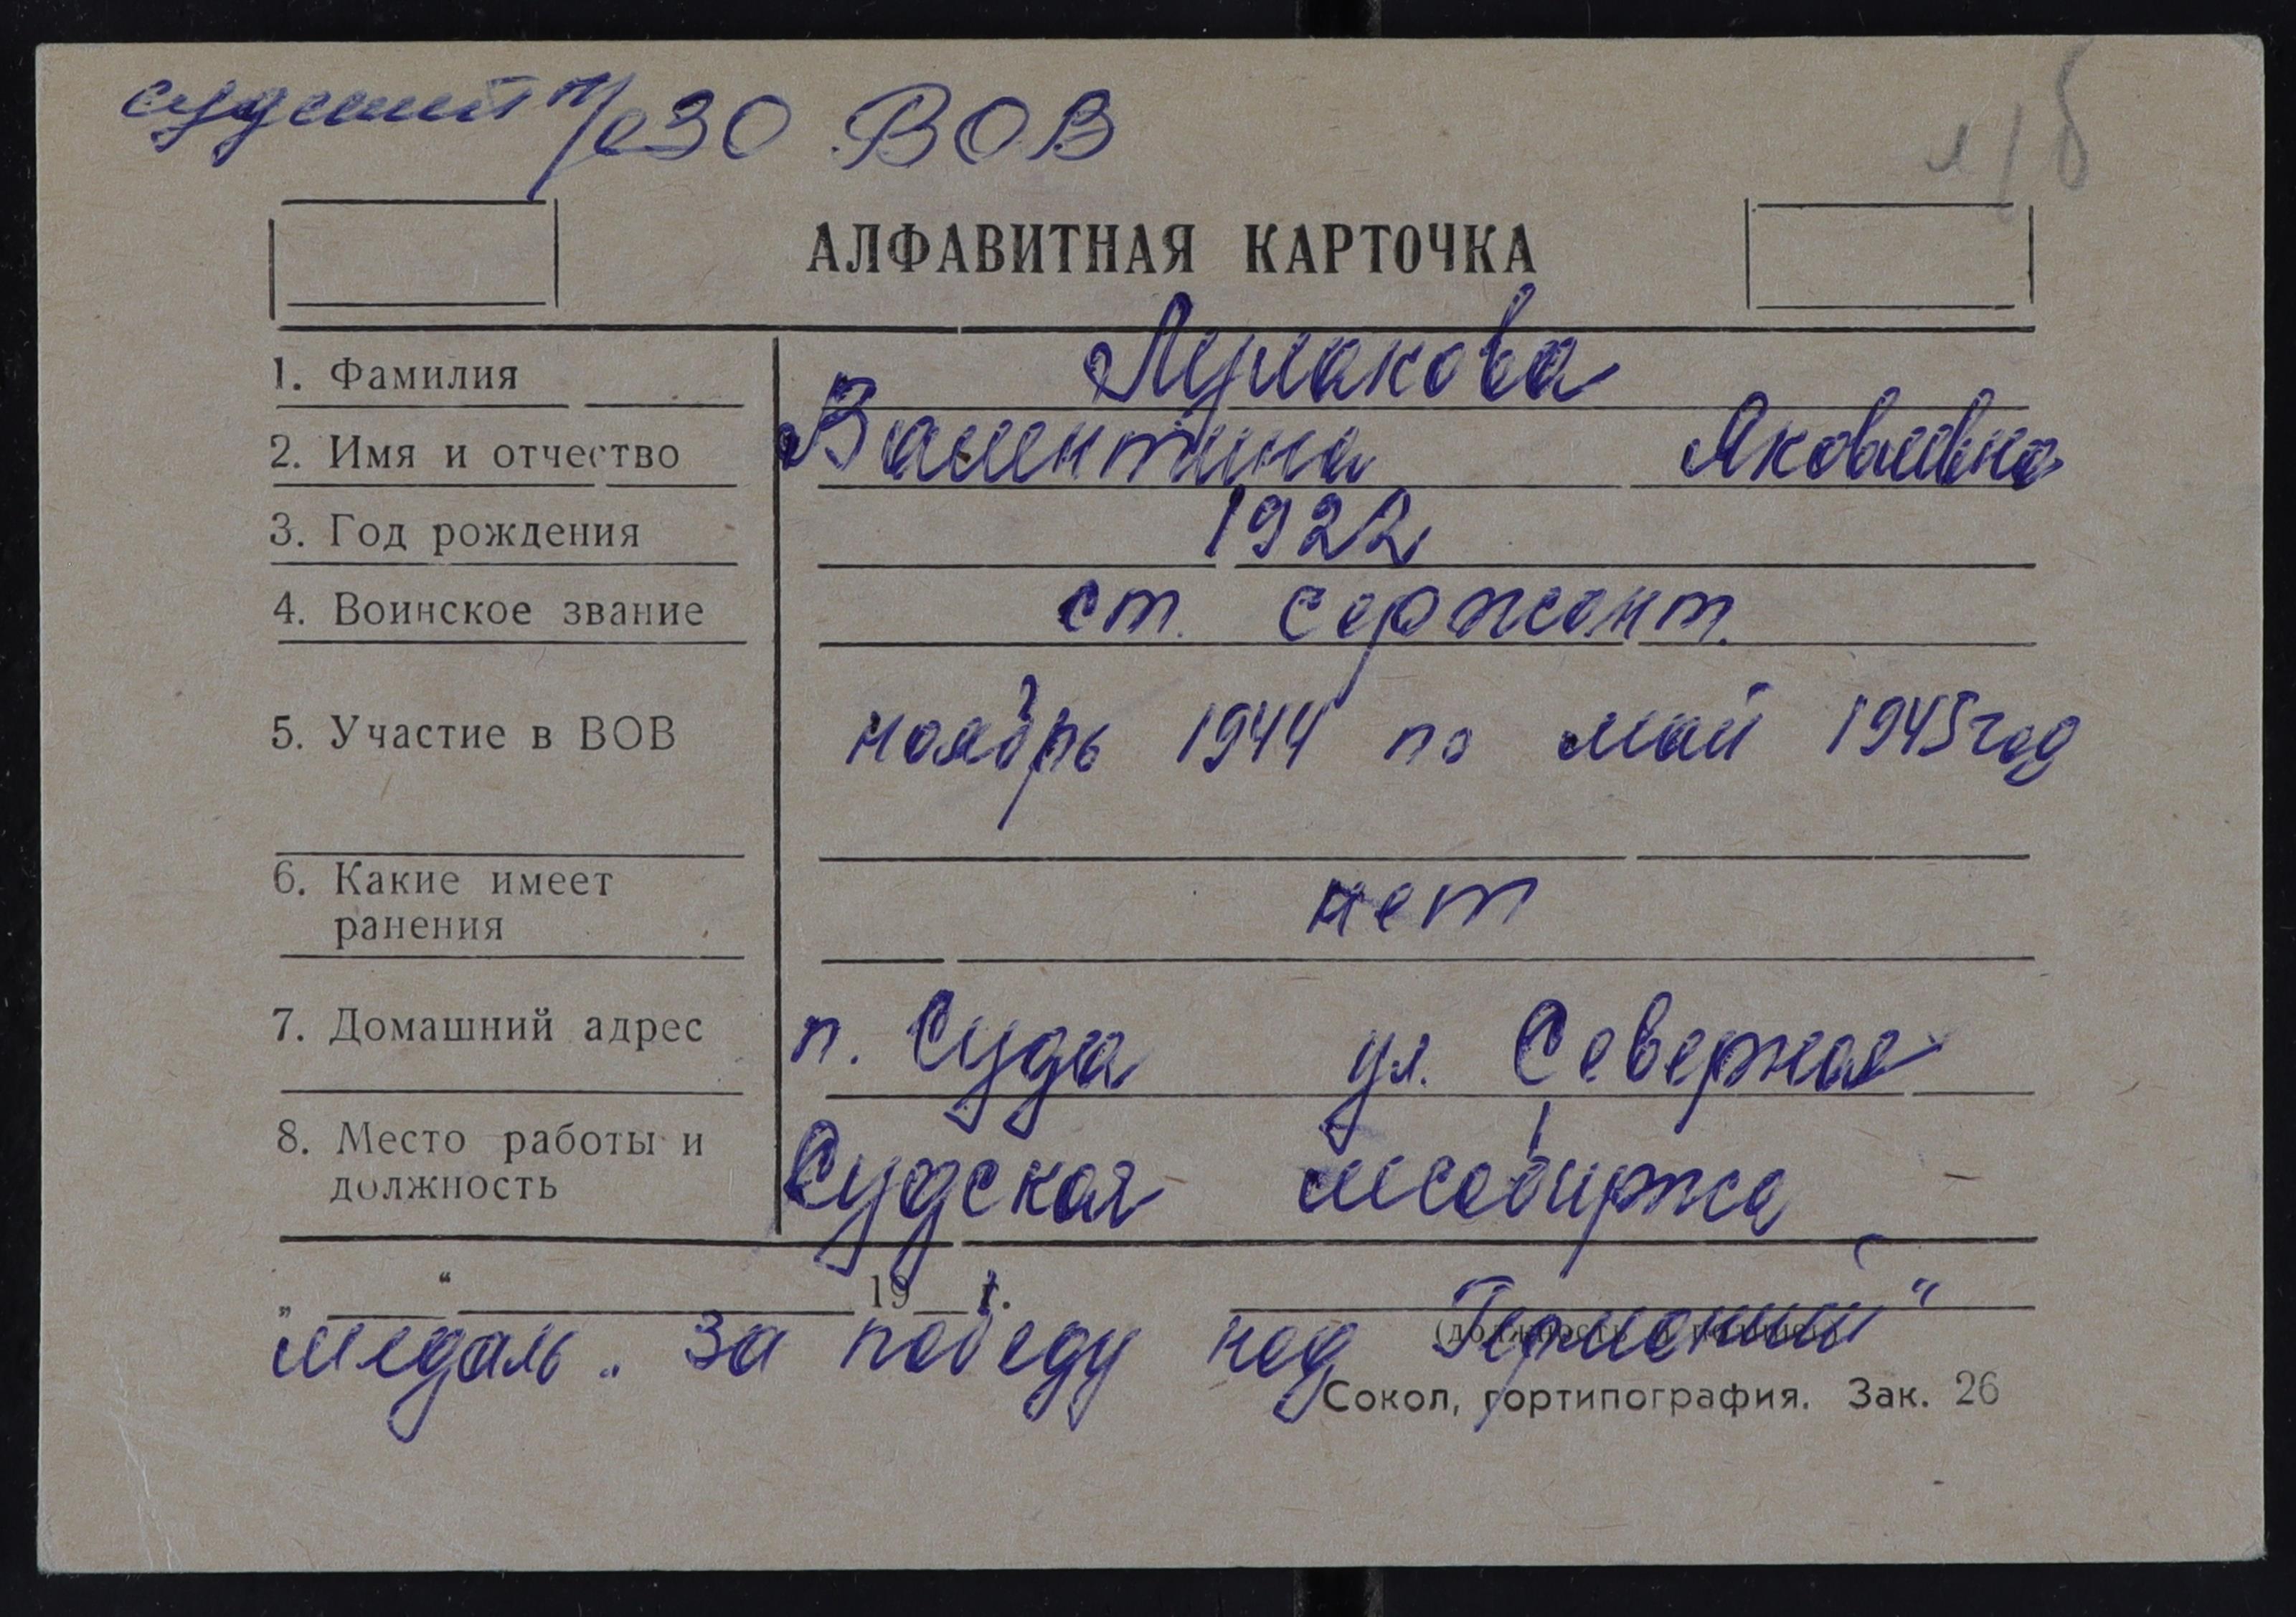 судский п/с 30 ВОВ
л/б
АЛФАВИТНАЯ КАРТОЧКА
1. Фамилия
2. Имя и отчество Валентина Яковлевна
3. Год рождения 1922
4. Воинское звание ст. сержант.
5. Участие в ВОВ ноябрь 1944 по май 1945 год
6. Какие имеет
ранения нет
7. Домашний адрес п. Суда ул. Северная
8. Место работы и
должность Судская лесобиржа
„ “ 19 г.
(должность и подпись)
медаль „За победу над Германией“
Сокол, гортипография. Зак. 26